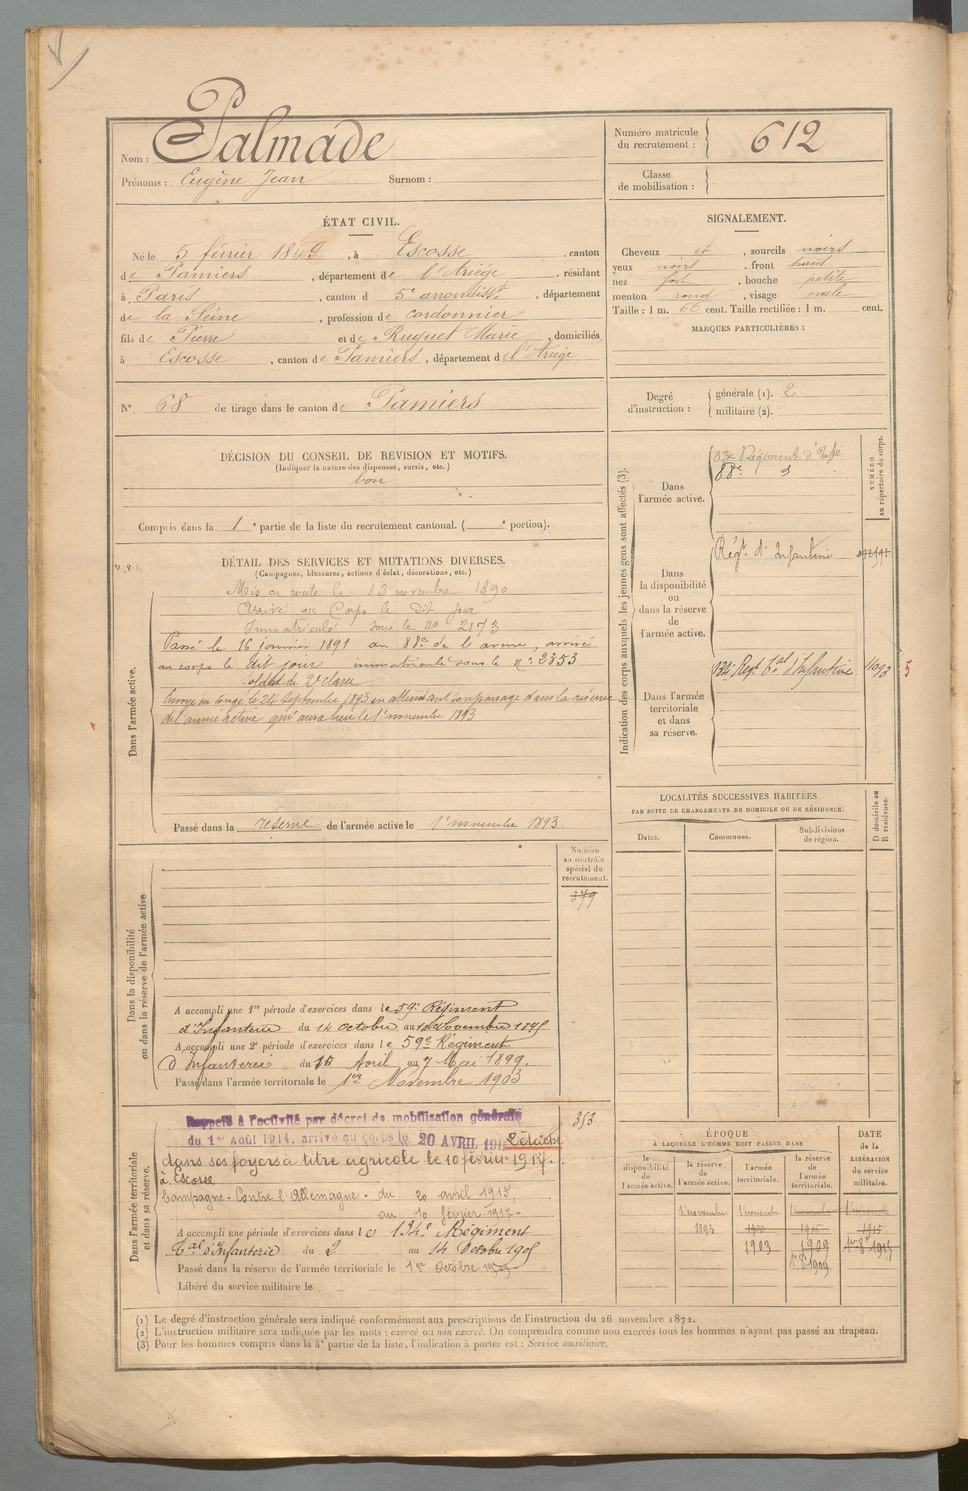 Nom : Palmade
Prénoms : Eugène Jean Surnom :
Numéro matricule du recrutement : 612
Classe de mobilisation :
ÉTAT CIVIL.
Né le 5 février 1869, à Escosse, canton
de Pamiers, département de l'Ariège, résidant
à Paris, canton d 5e arrondisst, département
de la Seine, profession de cordonnier
fils de Pierre et de Ruquet Marie, domiciliés
à Escosse, canton de Pamiers, département de l'Ariège
SIGNALEMENT.
Cheveux et, sourcils noirs
yeux noirs, front haut
nez fort, bouche petite
menton rond, visage ovale
Taille : 1 m. 66 cent. Taille rectifiée : 1 m. cent.
MARQUES PARTICULIÈRES :
N° 68 de tirage dans le canton de Pamiers
Degré d'instruction : générale (1). 2
militaire (2).
DÉCISION DU CONSEIL DE REVISION ET MOTIFS.
(Indiquer la nature des dispenses, sursis, etc.)
bon
Compris dans la 1e partie de la liste du recrutement cantonal. ( e portion).
DÉTAIL DES SERVICES ET MUTATIONS DIVERSES.
(Campagnes, blessures, actions d'éclat, décorations, etc.)
Dans l'armée active.
Mis en route le 13 novembre 1890
Arrivé au Corps le Dit Jour
Immatriculé sous le no 2173
Passé le 16 janvier 1891 au 88e de l'arme, arrivé
au corps le dit jour immatriculé sous le n° 2353
soldat de 2e classe
Envoyé en congé le 24 Septembre 1893 en attendant son passage dans la réserve
de l'armée active qui aura lieu le 1er novembre 1893
Passé dans la réserve de l'armée active le 1er novembre 1893.
Indication des corps auxquels les jeunes gens sont affectés (3).
NUMÉRO au répertoire du corps.
Dans l'armée active.
83e Régiment d'Infie
88e d
Dans la disponibilité ou dans la réserve de l'armée active.
Régt d'Infanterie
Dans l'armée territoriale et dans sa réserve.
134e Regt Tal d'Infanterie
5
LOCALITÉS SUCCESSIVES HABITÉES
PAR SUITE DE CHANGEMENTS DE DOMICILE OU DE RÉSIDENCE.
Dates. Communes. Subdivisions de région. D domicile ou R résidence.
Dans la disponibilité ou dans la réserve de l'armée active
Numéro au contrôle spécial du recrutement.
379
A accompli une 1re période d'exercices dans le 59e Régiment
d'Infanterie du 14 octobre au 10 Novembre 1895
A accompli une 2e période d'exercices dans le 59e Régiment
d'Infanterie du 10 Avril au 7 Mai 1899.
Passé dans l'armée territoriale le 1er Novembre 1903
Dans l'armée territoriale et dans sa réserve.
353
Rappelé à l'activité par décret de mobilisation générale
du 1er Août 1914, arrivé au corps le 20 AVRIL 1915 Détaché
dans ses foyers à titre agricole le 10 février 1917.
à Escosse
Campagne - Contre l'Allemagne - du 20 avril 1915,
au 10 février 1917 -
A accompli une période d'exercices dans le 134e Régiment
Tal d'Infanterie du 2 au 14 Octobre 1905
Passé dans la réserve de l'armée territoriale le 1er Octobre 1909
Libéré du service militaire le
ÉPOQUE
À LAQUELLE L'HOMME DOIT PASSER DANS
DATE de la LIBÉRATION du service militaire.
la disponibilité de l'armée active.
la réserve de l'armée active.
l'armée territoriale.
la réserve de l'armée territoriale.
1er novembre 1er novembre 1er novembre 1er novembre
1893 1900 1905 1915
1903 1909
1er 8bre 1909 1er 8bre 1915
(1) Le degré d'instruction générale sera indiqué conformément aux prescriptions de l'instruction du 26 novembre 1872.
(2) L'instruction militaire sera indiquée par les mots : exercé ou non exercé. On comprendra comme non exercés tous les hommes n'ayant pas passé au drapeau.
(3) Pour les hommes compris dans la 4e partie de la liste, l'indication à porter est : Service auxiliaire.